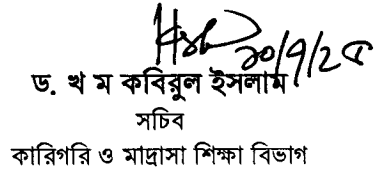 ২০/৭/২৫
ড. খ ম কবিরুল ইসলাম
সচিব
কারিগরি ও মাদ্রাসা শিক্ষা বিভাগ